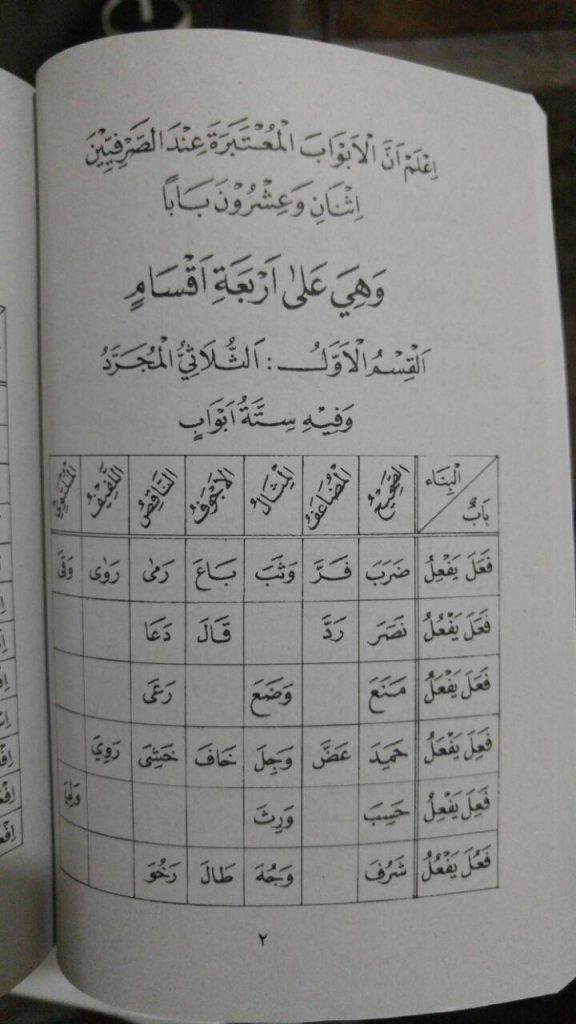 اِعْلَمْ اَنَّ الْاَبْوَابَ الْمُعْتَبَرَةَ عِنْدَ الصَّرْفِيِّيْنَ
اِثْنَانِ وَعِشْرُوْنَ بَابًا
وَهِيَ عَلٰى اَرْبَعَةِ اَقْسَامٍ
اَلْقِسْمُ الْاَوَّلُ : اَلثُّلَاثِيُّ الْمُجَرَّدُ
وَفِيْهِ سِتَّةُ اَبْوَابٍ
الْبِنَاء بَابٌ الصَّحِيْحُ الْمُضَاعَفُ الْمِثَالُ الْاَجْوَفُ النَّاقِصُ اللَّفِيْفُ
فَعَلَ يَفْعِلُ ضَرَبَ فَرَّ وَثَبَ بَاعَ رَمٰى رَوٰى وَقَى
فَعَلَ يَفْعُلُ نَصَرَ رَدَّ قَالَ دَعَا
فَعَلَ يَفْعَلُ مَنَعَ وَضَعَ رَعَى
فَعِلَ يَفْعَلُ حَمِدَ عَضَّ وَجِلَ خَافَ خَشِيَ رَوِيَ
فَعِلَ يَفْعِلُ حَسِبَ وَرِثَ
فَعُلَ يَفْعُلُ شَرُفَ وَجُهَ طَالَ رَخُوَ
٢